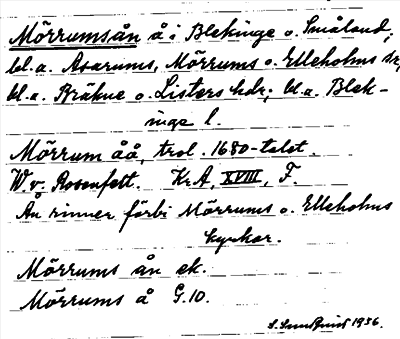 Mörrumsån å i Blekinge o. Småland;
bl.a. Asarums, Mörrums o. Elleholms sk;
bl.a. Bräkne o. Listers hdr; bl.a. Blek-
inge l.
Mörrum åå, trol. 1680-talet.
W. v. Rosenfelt. Kr.A, XVIII, F.
Ån rinner förbi Mörrums o. Elleholms
kyrkor.
Mörrums ån ek.
Mörrums å G.10.
1936.